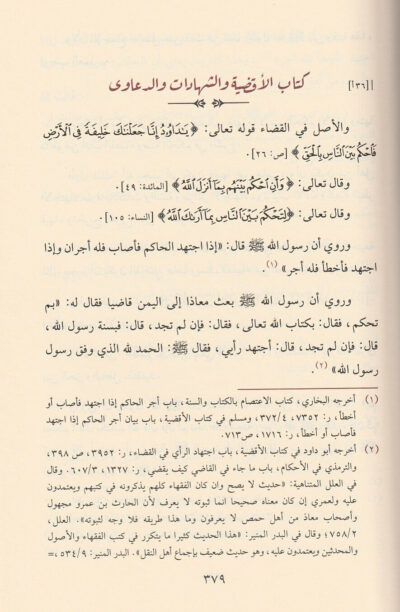 [١٣٦] كتاب الأقضية والشهادات والدعاوى
والأصل في القضاء قوله تعالى: ﴿يَٰدَاوُۥدُ إِنَّا جَعَلْنَٰكَ خَلِيفَةً فِى ٱلْأَرْضِ
فَٱحْكُم بَيْنَ ٱلنَّاسِ بِٱلْحَقِّ﴾ [ص: ٢٦].
وقال تعالى: ﴿وَأَنِ ٱحْكُم بَيْنَهُم بِمَآ أَنزَلَ ٱللَّهُ﴾ [المائدة: ٤٩].
وقال تعالى: ﴿لِتَحْكُمَ بَيْنَ ٱلنَّاسِ بِمَآ أَرَىٰكَ ٱللَّهُ﴾ [النساء: ١٠٥].
وروي أن رسول الله ﷺ قال: «إذا اجتهد الحاكم فأصاب فله أجران وإذا
اجتهد فأخطأ فله أجر»(١).
وروي أن رسول الله ﷺ بعث معاذا إلى اليمن قاضيا فقال له: «بم
تحكم، فقال: بكتاب الله تعالى، فقال: فإن لم تجد، قال: فبسنة رسول الله،
قال: فإن لم تجد، قال: أجتهد رأيي، فقال ﷺ: الحمد لله الذي وفق رسول
رسول الله»(٢).
(١) أخرجه البخاري، كتاب الاعتصام بالكتاب والسنة، باب أجر الحاكم إذا اجتهد فأصاب أو
أخطأ، ر: ٧٣٥٢، ٣٧٢/٤، ومسلم في كتاب الأقضية، باب بيان أجر الحاكم إذا اجتهد
فأصاب أو أخطأ، ر: ١٧١٦، ص٧١٣.
(٢) أخرجه أبو داود في كتاب الأقضية، باب اجتهاد الرأي في القضاء، ر: ٣٩٥٢، ص ٣٩٨،
والترمذي في الأحكام، باب ما جاء في القاضي كيف يقضي، ر: ١٣٢٧، ٦٠٧/٣. وقال
في العلل المتناهية: «حديث لا يصح وان كان الفقهاء كلهم يذكرونه في كتبهم ويعتمدون
عليه ولعمري إن كان معناه صحيحا انما ثبوته لا يعرف لأن الحارث بن عمرو مجهول
وأصحاب معاذ من أهل حمص لا يعرفون وما هذا طريقه فلا وجه لثبوته». العلل،
٧٥٨/٢؛ وقال في البدر المنير: «هذا الحديث كثيرا ما يتكرر في كتب الفقهاء والأصول
والمحدثين ويعتمدون عليه، وهو حديث ضعيف بإجماع أهل النقل». البدر المنير: ٥٣٤/٩، =
٣٧٩